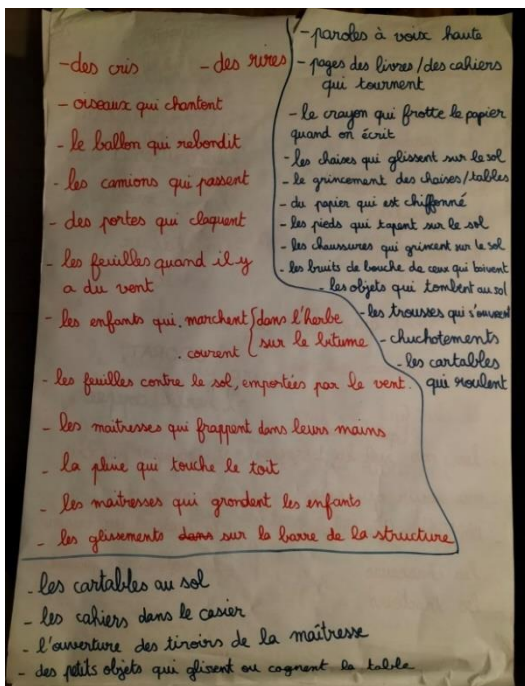 -des cris - des rires
- oiseaux qui chantent
- le ballon qui rebondit
- les camions qui passent
- des portes qui claquent
- les feuilles quand il y
a du vent
- les enfants qui . marchent { dans l'herbe
. courent sur le bitume
- les feuilles contre le sol, emportées par le vent.
- les maîtresses qui frappent dans leurs mains
- la pluie qui touche le toit
- les maîtresses qui grondent les enfants
- les glissements dans sur la barre de la structure
- paroles à voix haute
- pages des livres/des cahiers
qui tournent
- le crayon qui frotte le papier
quand on écrit
- les chaises qui glissent sur le sol
- le grincement des chaises/tables
- du papier qui est chiffonné
- les pieds qui tapent sur le sol
- les chaussures qui grincent sur le sol
- les bruits de bouche de ceux qui boivent
- les objets qui tombent au sol
- les trousses qui s'ouvrent
- chuchotements
- les cartables
qui roulent
- les cartables au sol
- les cahiers dans le casier
- l'ouverture des tiroirs de la maîtresse
- des petits objets qui glissent ou cognent la table